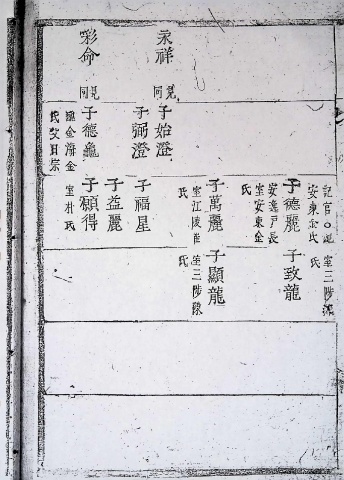 記官○配
安東金氏
室三陟沈
氏
子德麗
安逸戶長
室安東金
氏
子致龍
子萬麗
室江陵崔
氏
子顯龍
室三陟陳
氏
永祥
見同
子始澄
子弼澄
子福星
子益麗
彩命
見同
子德龜
金海金
氏父日宗
子願得
室朴氏